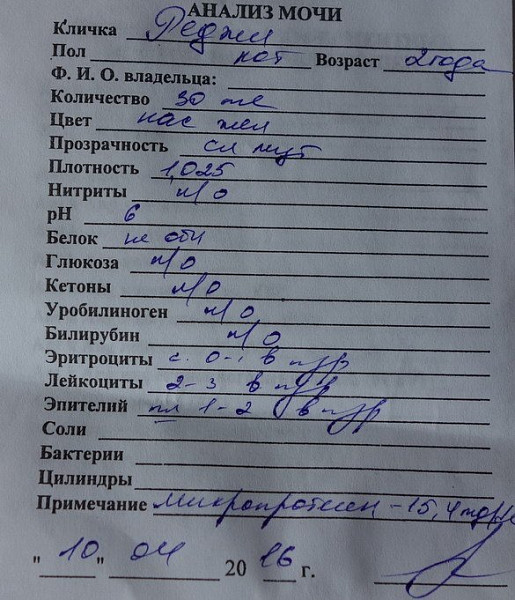 АНАЛИЗ МОЧИ
Кличка Реджи
Пол кот Возраст 2 года
Ф. И. О. владельца:
Количество 30 мл
Цвет нас жел
Прозрачность сл мут
Плотность 1,025
Нитриты н/о
рН 6
Белок не обн
Глюкоза н/о
Кетоны н/о
Уробилиноген н/о
Билирубин н/о
Эритроциты с. 0-1 в п/зр
Лейкоциты 2-3 в п/зр
Эпителий пл 1-2 в п/зр
Соли
Бактерии
Цилиндры
Примечание микропротеин - 15,4
"10" 04 2016 г.